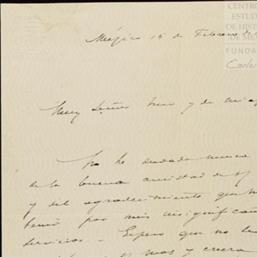 CENTRO
ESTUD
DE HIST
DE MÉX
FUNDA
Carlos
Méjico 15 de Febrero
Muy Señor mio y de mi a
No he dudado nunca
de la buena amistad de
y del agradecimiento que
por mis insignifican
servicios. Espero que no
mas y creera